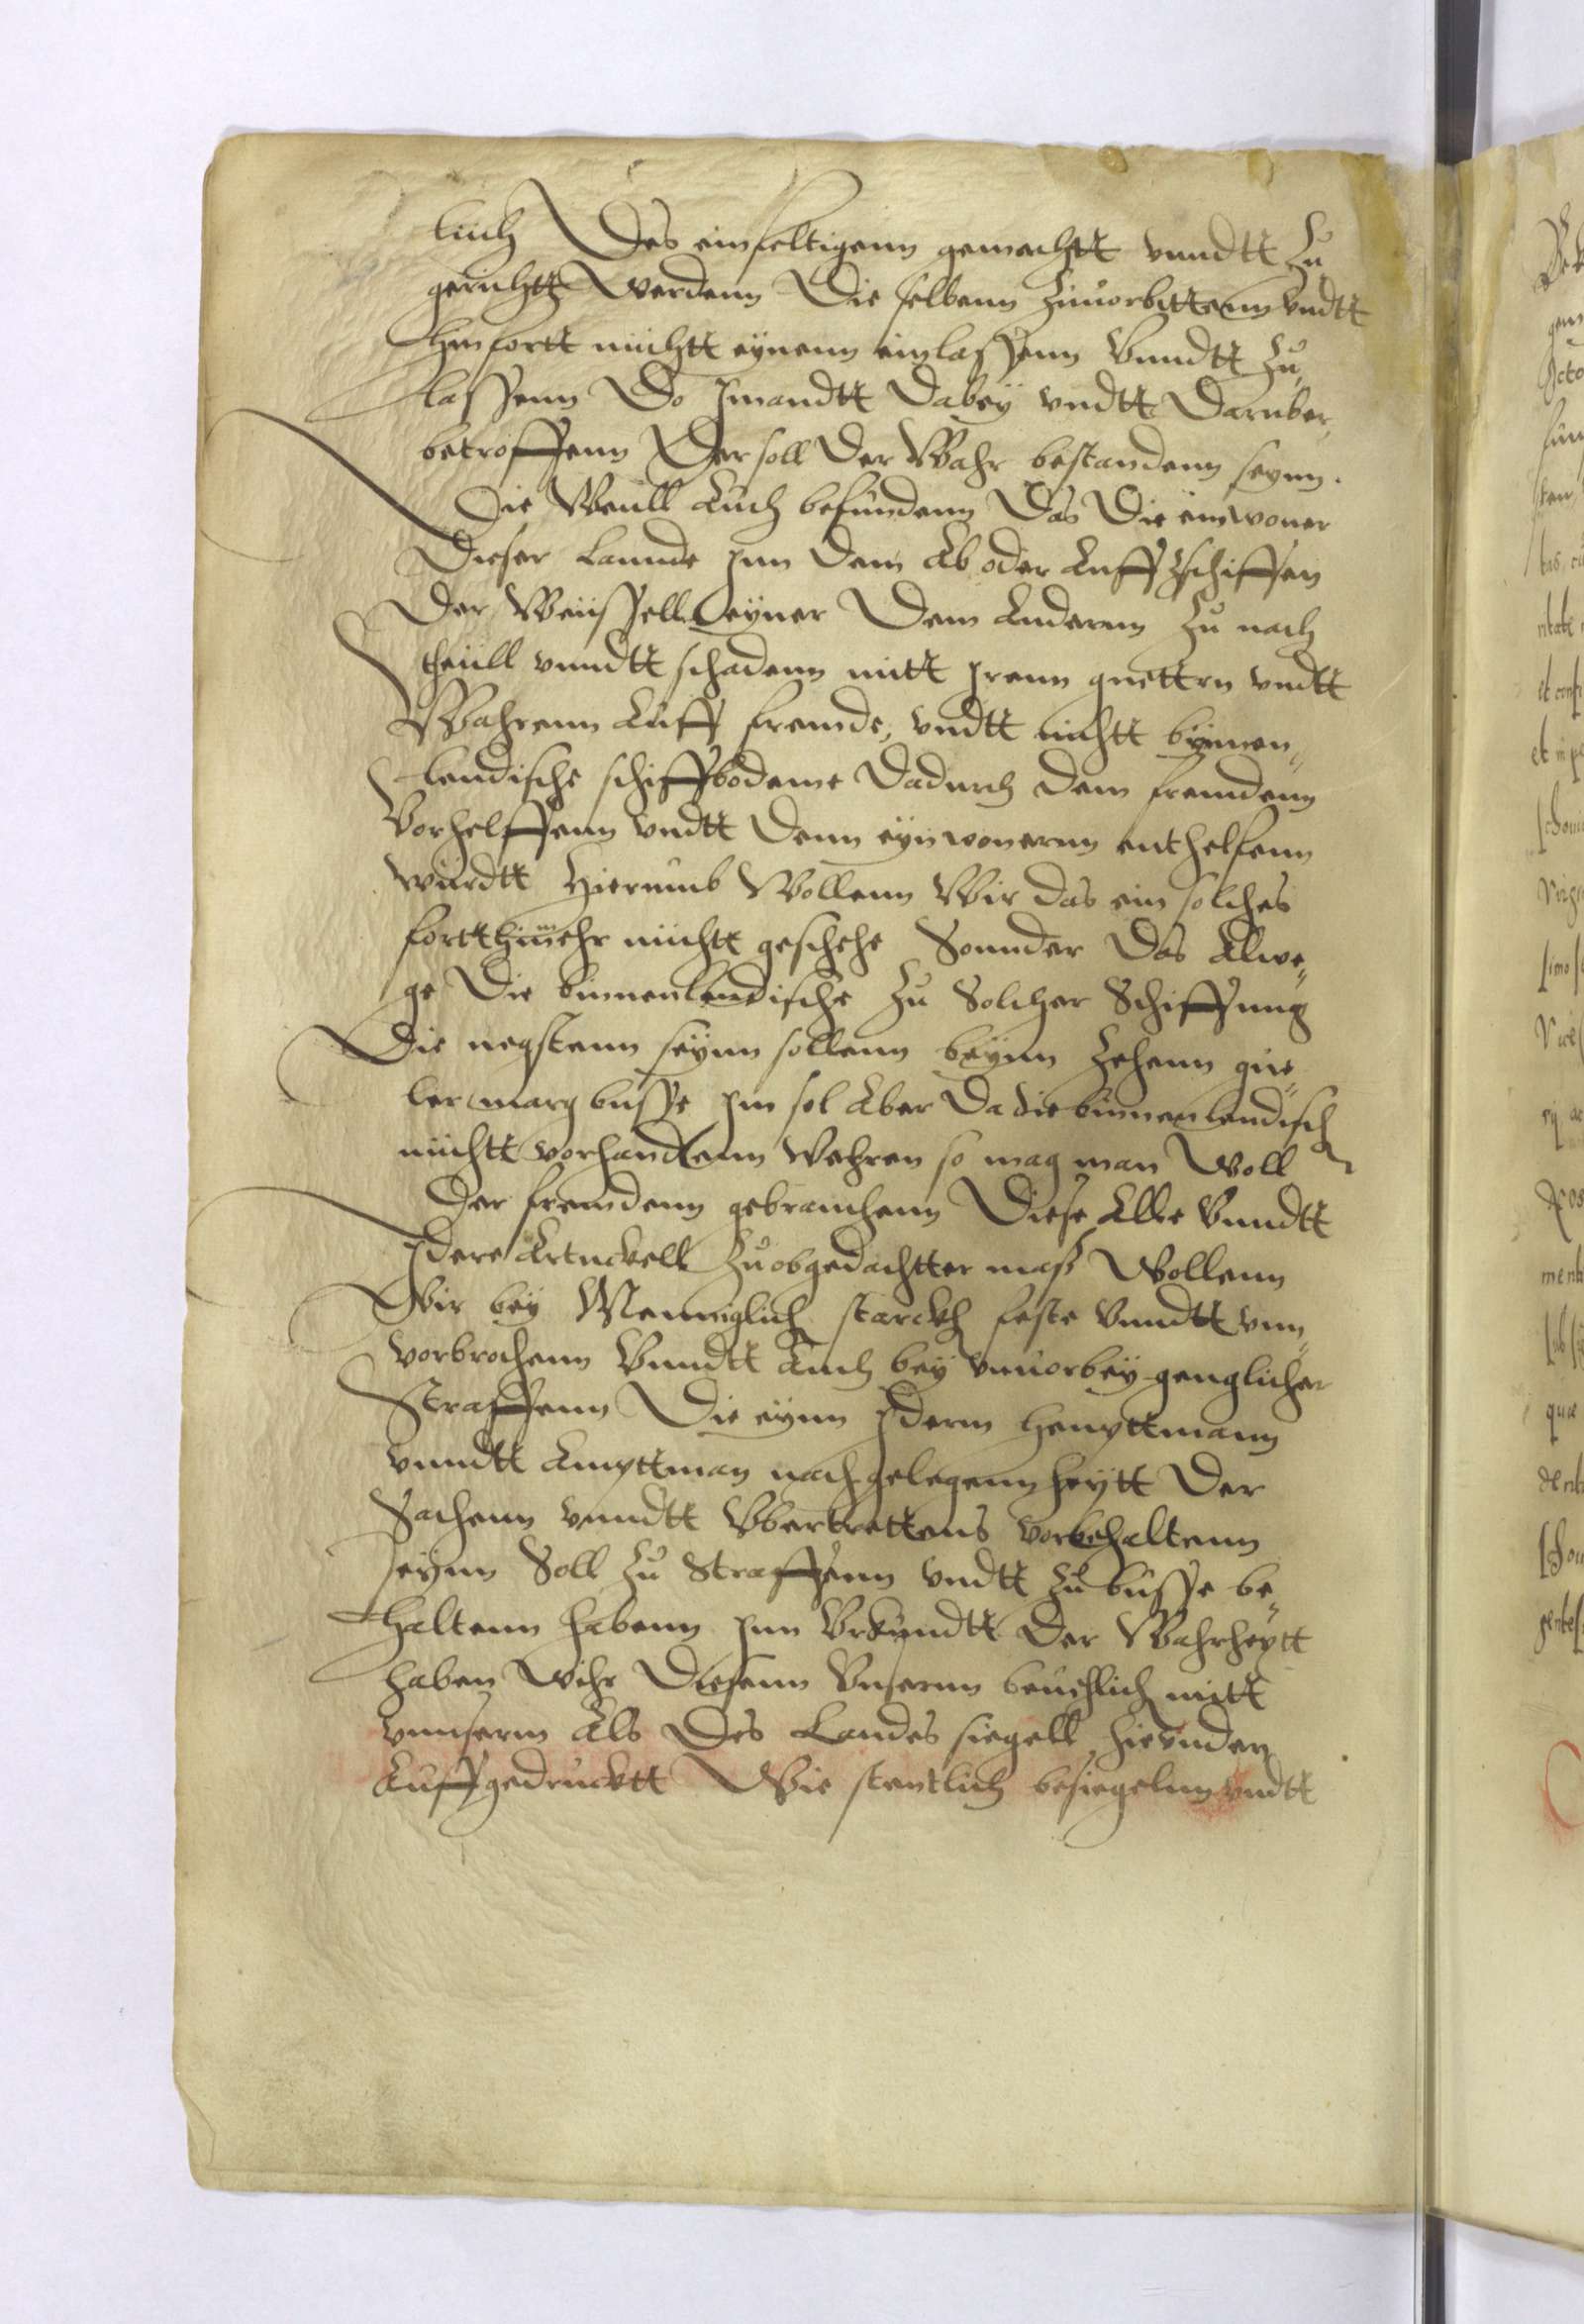 lich Des einfeltigenn gemachtt vnndtt Zu
gerichtt werdenn Die selbenn Zuuorbittenn vndtt
hinfortt nichtt eynenn einlassenn Vnndtt Zu
lassenn Do Jmandtt Dabey vndtt Daruber
betroffenn Der soll Der Wahr bestandenn seynn.
Die Weill Auch befundenn Das Die einwoner
Dieser Lannde Jnn Dem Ab oder Auff schiffen
Der Weissell eyner Dem Anderenn Zu nach
theill vnndtt schadenn mitt Jrenn guettrn vndtt
Wahrenn Auff fremde, vndtt nichtt bynnen„
lendische schiffbodeme Dadurch Dem fremdenn
Vorhelffenn vndtt Denn eynwonernn enthelfenn
wurdtt Hierumb Wollenn Wir das ein solches
fortthinmehr nichtt geschehe Sonnder Das Alwe„
ge Die binnenlendische Zu Solcher Schiffung
Die negstenn seynn sollenn beynn Zehenn gue„
ler marg busse Jm fol Aber Da die binnenlendisch
nichtt vorhandenn wehren so mag man Woll
Der fremdenn gebrauchenn Diese Alle Vnndtt
Jdere Artickell Zu obgedachtter mass Wollenn
Wir bey Menniglich starckh feste Vnndtt vnn„
vorbrochenn Vnndtt Auch bey vnuorbey genglicher
Straffenn Die eynn Jderm heuptmann
vnndtt Amptman nach gelegennheytt Der
Sachenn vnndtt Vbertrettens vorbehaltenn
seynn Soll Zu Straffenn vndtt Zu busse be„
haltenn habenn Jnn Vrkundtt Der Wahrheytt
haben wihr Diesenn Vnsernn beuehlich mitt
vnnserm Als Des Landes siegell hirunden
Auffgedrucktt Wie stentlich besiegelnn vndtt